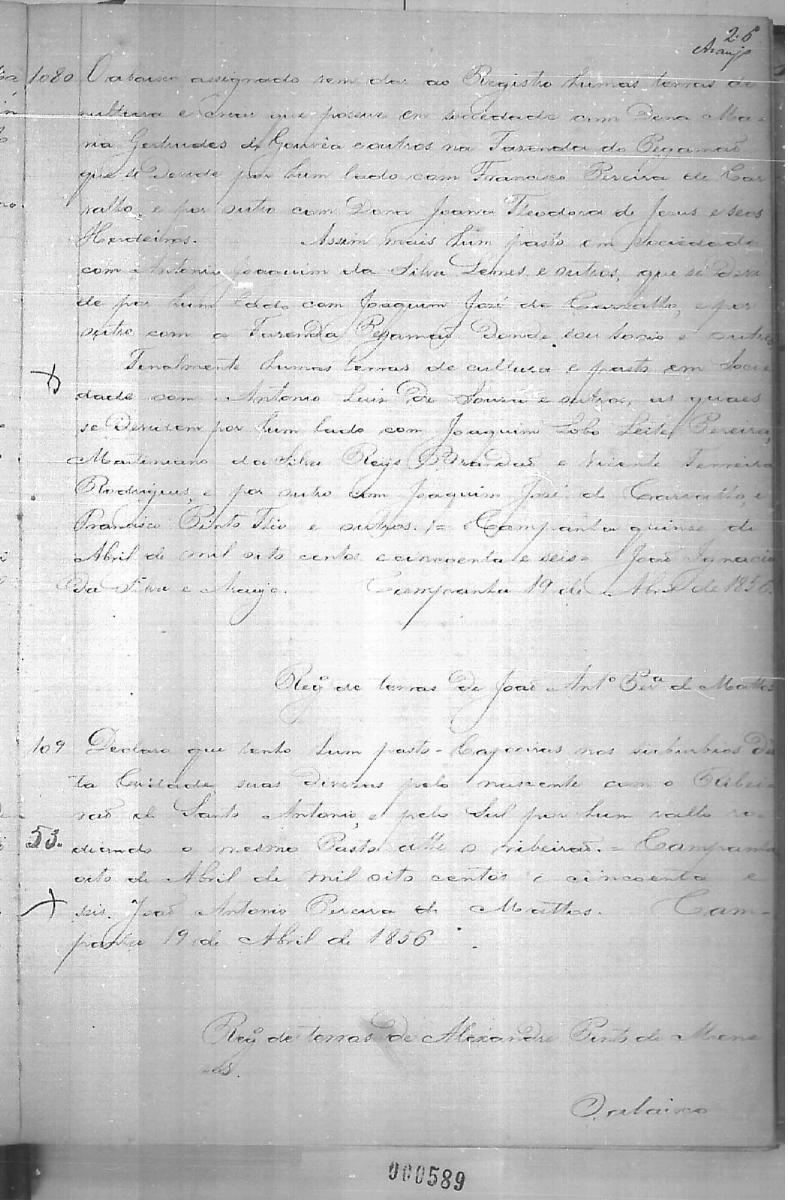 26
Araujo
1080 O abaixo assignado vem dar ao Registro humas terras de
cultura e crear que possue em sociedade com Dona Ma-
ria Gertrudes de Gouvêa e outros na Fazenda do Pegamaõ
que se devide por hum lado com Francisco Pereira de Car
valho, e por outro com Dona Joana Theodora de Jesus e seos
Herdeiros. Assim mais hum pasto em sociedade
com Antonio Joaquim da Silva Lemes, e outros, que se devi
de por hum lado com Joaquim José de Carvalho, e por
outro com a Fazenda Pegamaõ Donde seu socio e outros
Finalmente humas terras de cultura e pasto em Socie
dade com Antonio Luiz de Souza e outros, as quaes
se devidem por hum lado com Joaquim Lobo Leite Pereira,
Martiniano da Silva Reys Brandaõ e Vicente Ferreira
Rodrigues, e por outro com Joaquim José de Carvalho, e
Francisco Pinto e outros. = Campanha quinse de
Abril de mil oito centos e cincoenta e seis = Joaõ Ignacio
da Silva e Araujo. Campanha 19 de Abril de 1856.
Regº de terras de Joaõ Antº Perª de Mattos
109 Declaro que tenho hum pasto - Capoeiras nos suburbios des
ta Cidade suas divisas pelo nascente com o Ribei
raõ de Santo Antonio, e pelo Sul por hum vallo ro-
53. diando o mesmo Pasto athe o ribeiraõ. = Campanha
oito de Abril de mil oito centos e cincoenta e
seis. Joaõ Antonio Pereira de Mattos. Cam-
panha 19 de Abril de 1856.
Regº de terras de Alexandre Pinto de Mene
O abaixo
000589